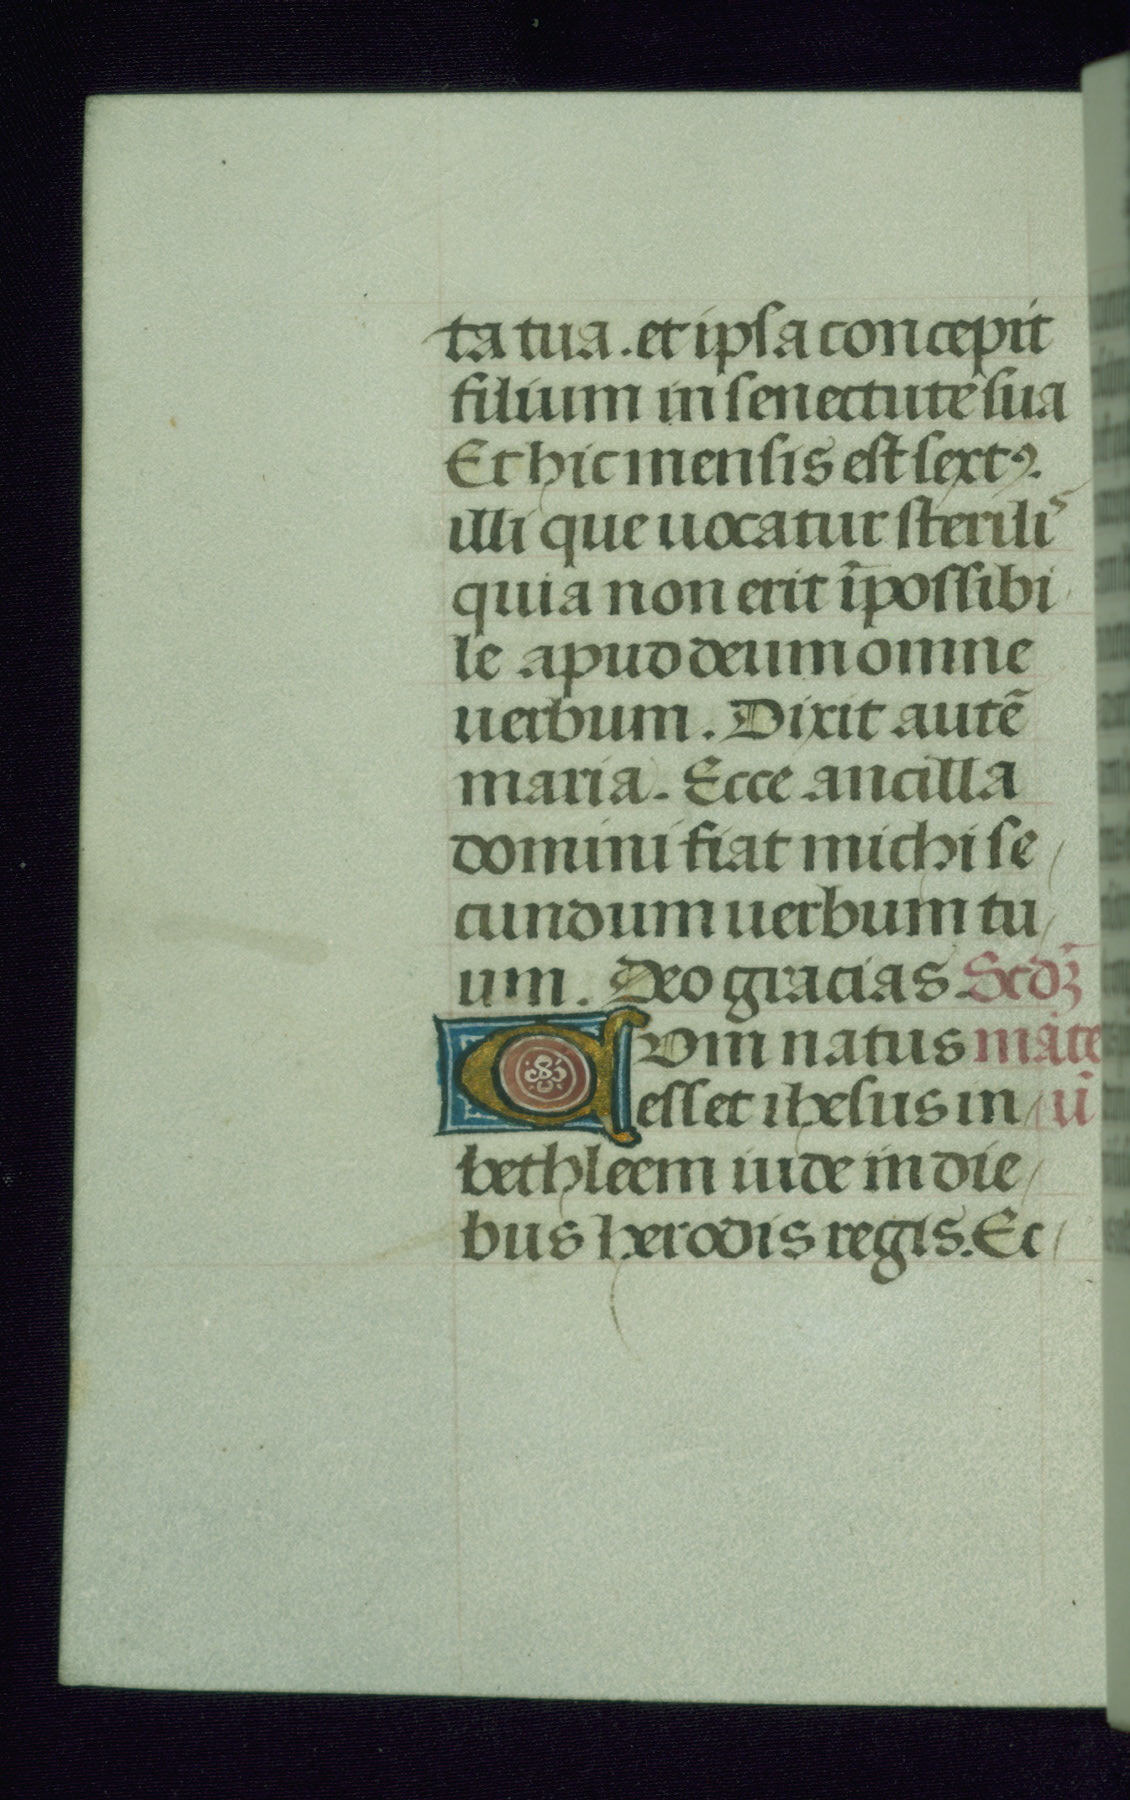 ta tua. et ipsa concepit
filium in senectute sua
Et hic mensis est sextꝰ.
illi que uocatur sterilis
quia non erit īpossibi
le apud deum omne
uerbum. Dixit autē
maria. Ecce ancilla
domini fiat michi se
cundum uerbum tu
um. Deo gracias Scdʒ̄
Cum natus mate
esset ihesus in ū
bethleem iude in die
bus herodis regis. Ec